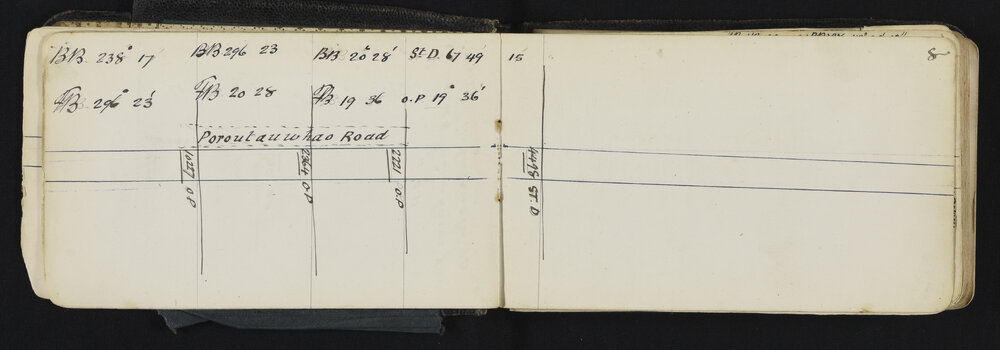 BB 238° 17' BB 296 23 BB 20° 28' St D. 67 49 15
8
FB 296° 23' FB 20 28 FB 19 36 O.P 19° 36'
Poroutauwhao Road
10257 O.P
2364 O.P
2221 O.P
4498 ST. D